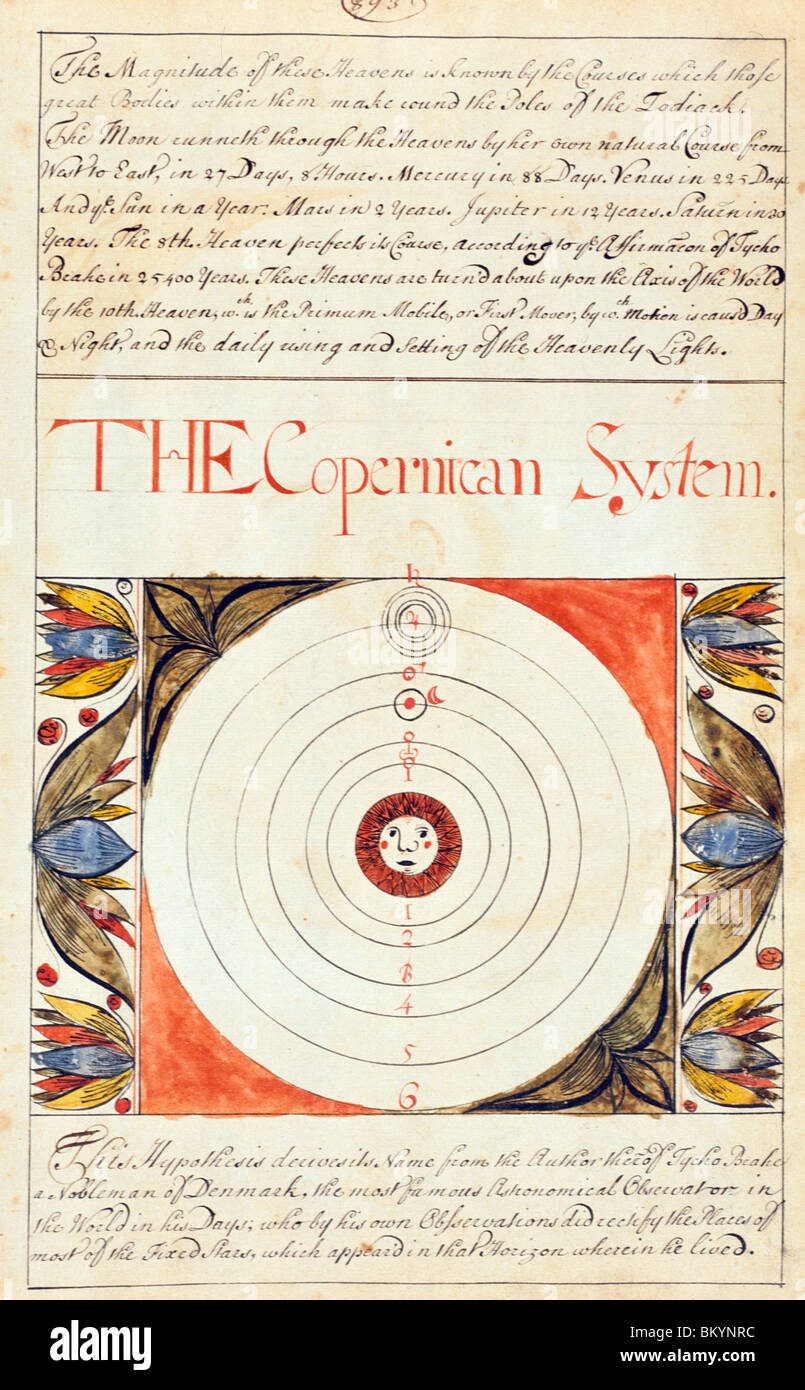 893
The Magnitude of these Heavens is known by the Courses which those
great Bodies within them make round the Poles of the Zodiack.
The Moon runneth through the Heavens by her own natural Course from
West to East, in 27 Days, 8 Hours. Mercury in 88 Days. Venus in 225 Days
And yᵉ Sun in a Year: Mars in 2 Years. Jupiter in 12 Years. Saturn in 30
Years. The 8th. Heaven perfects its Course, according to yᵉ Affirmacon of Tycho
Brahe in 25400 Years. These Heavens are turn'd about upon the Axis of the World
by the 10th. Heaven, wᶜʰ. is the Primum Mobile, or First Mover, by wᶜʰ. Motion is caus'd Day
& Night, and the daily rising and Setting of the Heavenly Lights.
THE Copernican System.
♄
♃
♂
☾
♀
☿
1
2
3
4
5
6
This Hypothesis derives its Name from the Author thereof Tycho Brahe
a Nobleman of Denmark, the most famous Astronomical Observator in
the World in his Days; who by his own Observations did rectify the Places of
most of the Fixed Stars, which appear'd in that Horizon wherein he lived.
alamy
Image ID: BKYNRC
www.alamy.com